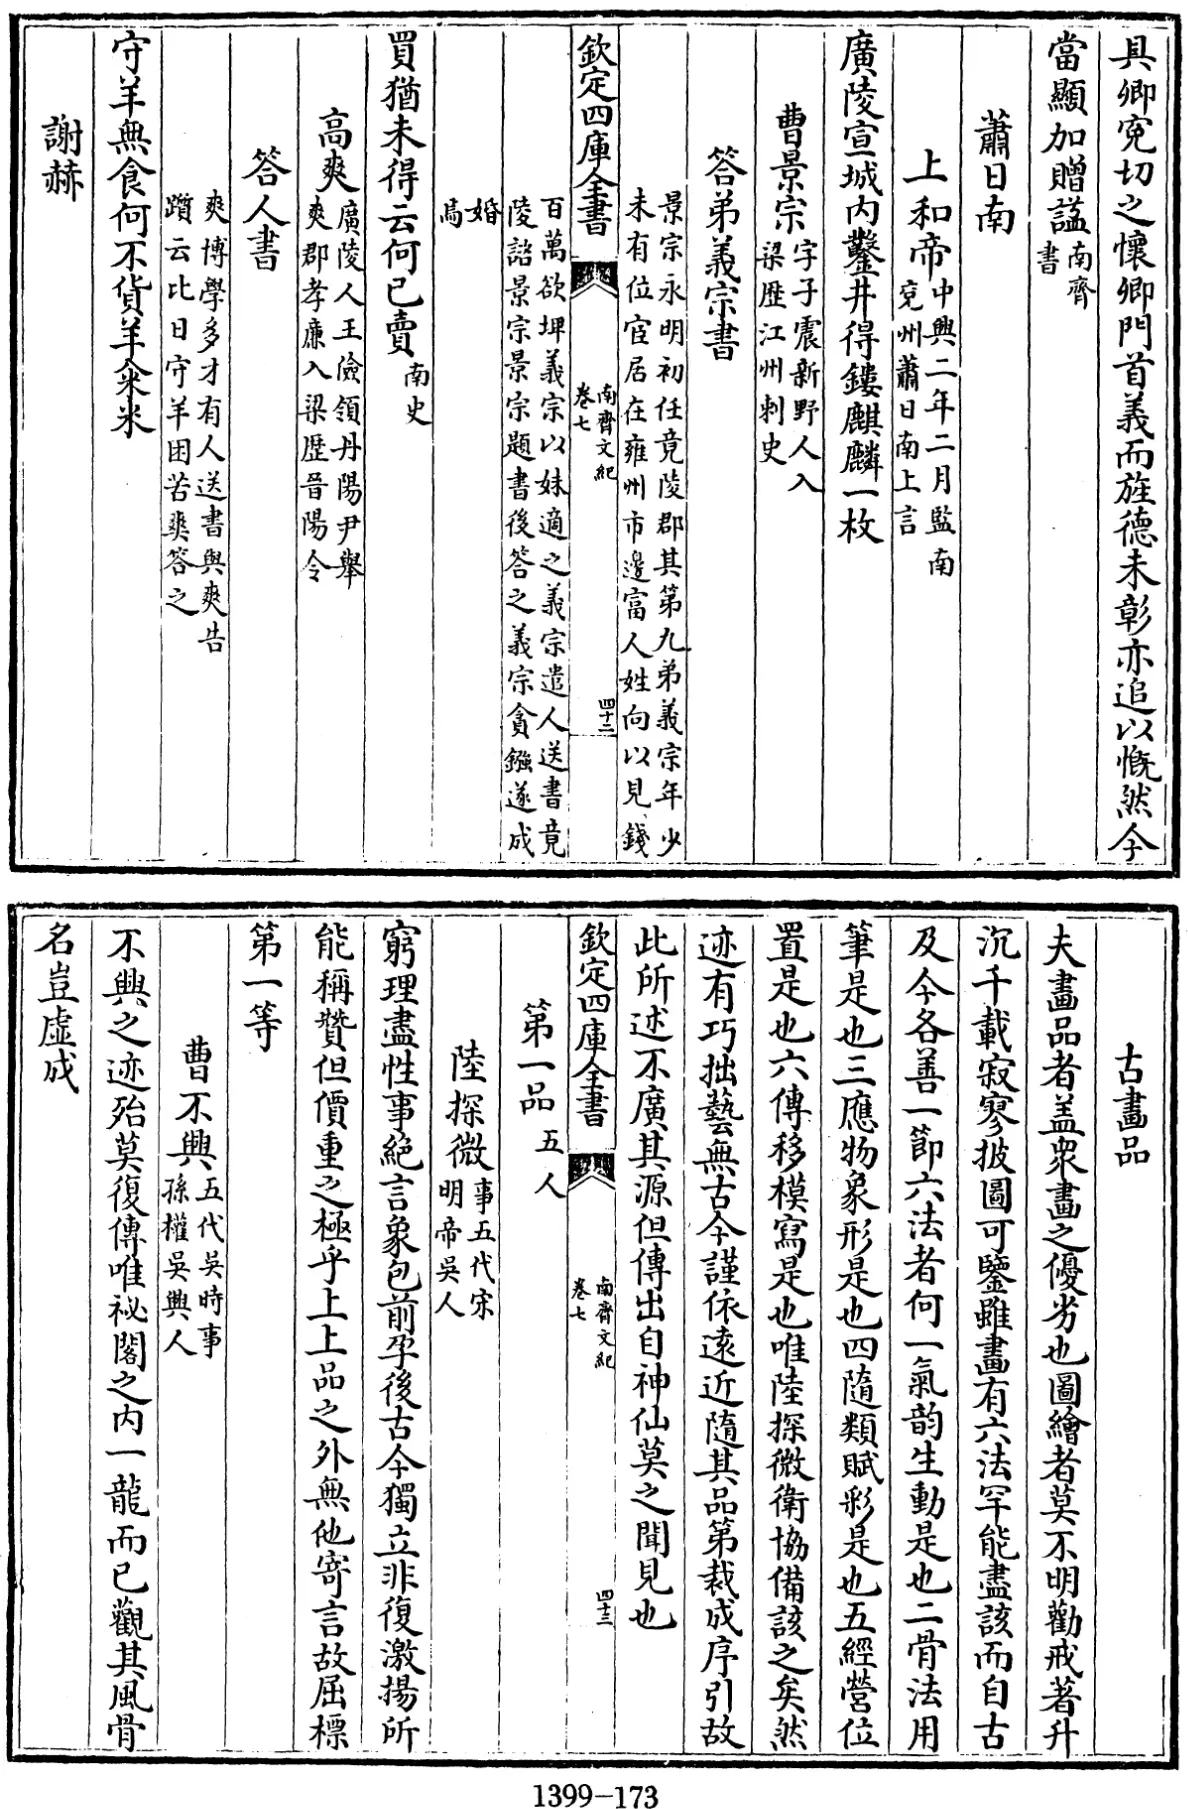 具卿寃切之懷卿門首義而旌德未彰亦追以慨然今
當顯加贈諡南齊
書
蕭日南
上和帝中興二年二月監南
兖州蕭日南上言
廣陵宣城内鑿井得鏤麒麟一枚
曹景宗字子震新野人入
梁歴江州刺史
答弟義宗書
景宗永明初任竟陵郡其第九弟義宗年少
未有位宦居在雍州市邊富人姓向以見錢
欽定四庫全書
南齊文紀
卷七
四十二
百萬欲埤義宗以妹適之義宗遣人送書竟
陵諮景宗景宗題書後答之義宗貪鏹遂成
婚
焉
買猶未得云何已賣南史
高爽廣陵人王儉領丹陽尹舉
爽郡孝廉入梁歴晉陽令
答人書
爽博學多才有人送書與爽告
躓云比日守羊困苦爽答之
守羊無食何不貨羊籴米
謝赫
古畫品
夫畫品者盖衆畫之優劣也圖繪者莫不明勸戒著升
沉千載寂寥披圖可鑒雖畫有六法罕能盡該而自古
及今各善一節六法者何一氣韵生動是也二骨法用
筆是也三應物象形是也四隨類賦彩是也五經營位
置是也六傳移模寫是也唯陸探微衛協備該之矣然
迹有巧拙藝無古今謹依遠近隨其品第裁成序引故
此所述不廣其源但傳出自神仙莫之聞見也
欽定四庫全書
南齊文紀
卷七
四十三
第一品五人
陸探微事五代宋
明帝吳人
窮理盡性事絶言象包前孕後古今獨立非復激揚所
能稱贊但價重之極乎上上品之外無他寄言故屈標
第一等
曹不興五代吳時事
孫權吳興人
不興之迹殆莫復傳唯祕閣之内一龍而已觀其風骨
名豈虛成
1399-173